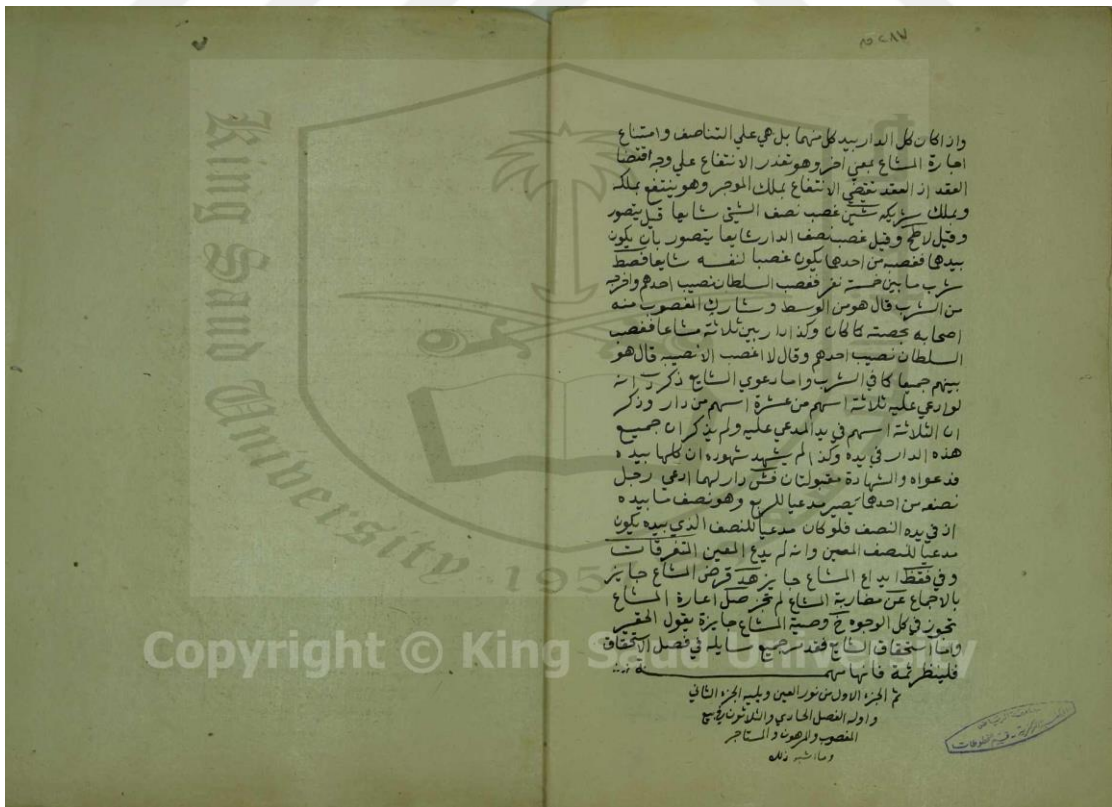 واذا كان كل الدار بيد كل منهما بل هي علي التناصف وامتناع
اجارة المشاع بمعني اخر وهو تعذر الانتفاع علي وجه اقتضا
العقد اذ العقد يقتضي الانتفاع بملك الموجر وهو ينتفع بملكه
وبملك شريكه غصب نصف الشيئ شايعا قيل يتصور
وقيل لا وقيل غصب نصف الدار شايعا يتصور بان يكون
بيدهما فغصبه من احدهما يكون غصبا لنفسه شايعا
شرب ما بين خمسة نفر فغصب السلطان نصيب احدهم واخرجه
من الشرب قال هو من الوسط وشارك المغصوب منه
اصحابه بحصته كما كان وكذا دار بين ثلاثة مشاعا فغصب
السلطان نصيب احدهم وقال لا اغصب الا نصيبه قال هو
بينهم جميعا كما في الشرب واما دعوي الشايع ذكر انه
لو ادعي عليه ثلاثة اسهم من عشرة اسهم من دار وذكر
ان الثلاثة اسهم في يد المدعي عليه ولم يذكر ان جميع
هذه الدار في يده وكذا لم يشهد شهوده ان كلها بيده
فدعواه والشهادة مقبولتان دار لهما ادعي رجل
نصفه من احدهما يصير مدعيا للربع وهو نصف ما بيده
اذ في يده النصف فلو كان مدعيا للنصف الذي بيده يكون
مدعيا للنصف المعين وانه لم يدع المعين المتفرقات
وفي فقظ ايداع المشاع جايز هد قرض المشاع جايز
بالاجماع عن مضاربة المشاع لم تجز صل اعارة المشاع
تجوز في كل الوجوه خ وصية المشاع جايزة يقول الحقير
واما استحقاق الشايع فقد مر جميع مسايله في فصل الاستحقاق
فلينظر ثمة فانها مهمة
تم الجزء الاول من نور العين ويليه الجزء الثاني
واوله الفصل الحادي والثلاثون في بيع
المغصوب والمرهون والمستاجر
وما اشبه ذلك
King Saud University
1957
Copyright © King Saud University